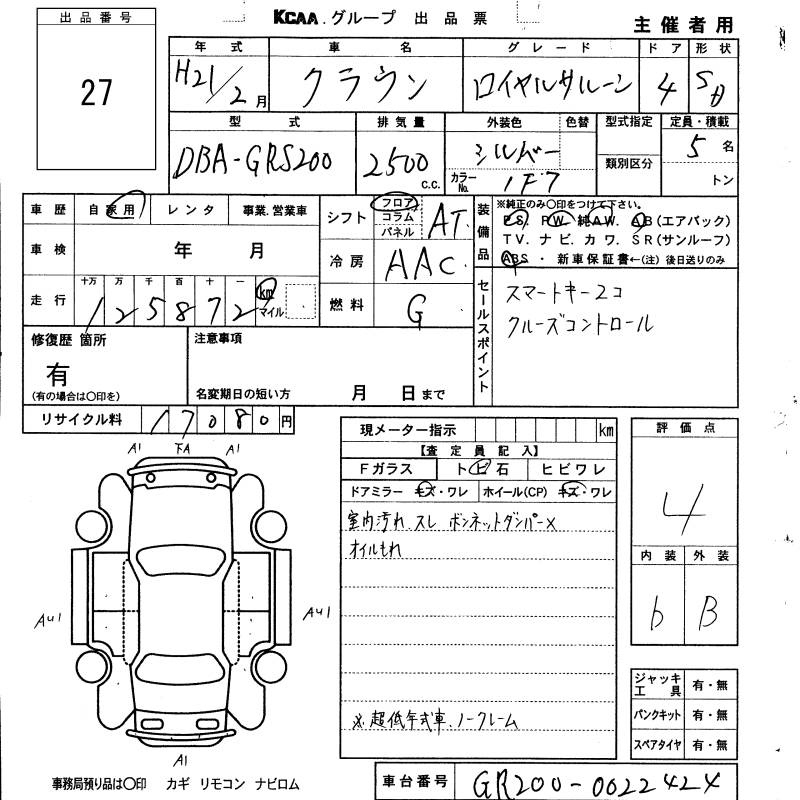 KCAA.グループ 出品票
主催者用
出品番号
27
年式 車名 グレード ドア 形状
H21/2月 クラウン ロイヤルサルーン 4 SD
型式 排気量 外装色 色替 型式指定 定員・積載
DBA-GRS200 2500 C.C. シルバー 5名
カラーNo. 1F7 類別区分 トン
車歴 自家用 レンタ 事業.営業車
シフト フロア コラム パネル AT
装備品 ※純正のみ〇印をつけて下さい。
PS. PW. 純AW. AB(エアバック)
TV. ナビ. カワ. SR(サンルーフ)
ABS ・ 新車保証書←(注) 後日送りのみ
車検 年 月
冷房 AAC
走行 十万 万 千 百 十 一
125872 km マイル
燃料 G
セールスポイント
スマートキー2コ
クルーズコントロール
修復歴 箇所
有
(有の場合は〇印を)
注意事項
名変期日の短い方 月 日まで
リサイクル料 17080円
現メーター指示 km
【査定員記入】
Fガラス トビ石 ヒビワレ
ドアミラー キズ・ワレ ホイール(CP) キズ・ワレ
室内汚れ スレ ボンネットダンパー×
オイルもれ
※超低年式車.ノークレーム
評価点
4
内装 外装
b B
A1 下A A1
AU1 AU1
A1
ジャッキ工具 有・無
パンクキット 有・無
スペアタイヤ 有・無
事務局預り品は〇印 カギ リモコン ナビロム
車台番号 GR200-0022424